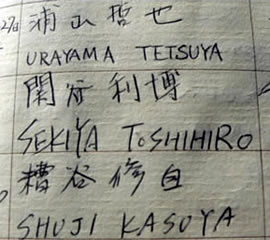 27日 浦山哲也
URAYAMA TETSUYA
関谷利博
SEKIYA TOSHIHIRO
糟谷修自
SHUJI KASUYA